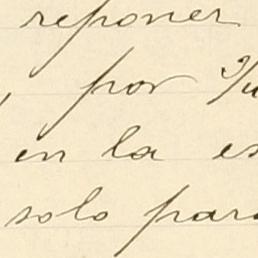 reponer
, por
en la es
solo para